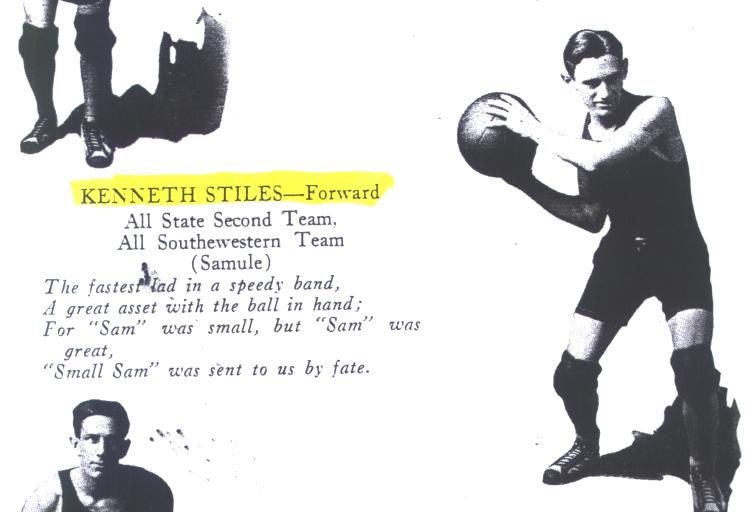 KENNETH STILES—Forward
All State Second Team,
All Southewestern Team
(Samule)
The fastest lad in a speedy band,
A great asset with the ball in hand;
For "Sam" was small, but "Sam" was
great,
"Small Sam" was sent to us by fate.